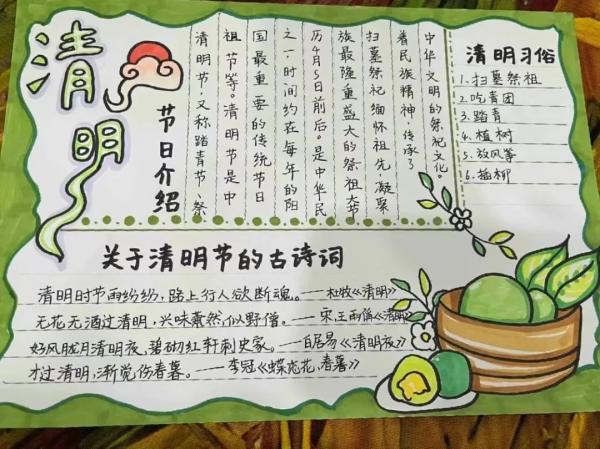 清明
节日介绍
清明节,又称踏青节、祭
祖节等。清明节是中
国最重要的传统节日
之一,时间约在每年的阳
历4月5日前后。是中华民
族最隆重盛大的祭祖大节
扫墓祭祀缅怀祖先,凝聚
着民族精神,传承了
中华文明的祭祀文化。
清明习俗
1.扫墓祭祖
2.吃青团
3.踏青
4.植树
5.放风筝
6.插柳
关于清明节的古诗词
清明时节雨纷纷,路上行人欲断魂。——杜牧《清明》
无花无酒过清明,兴味萧然似野僧。——宋,王雨偁《清明》
好风胧月清明夜,碧砌红轩刺史家。——白居易《清明夜》
才过清明,渐觉伤春暮。——李冠《蝶恋花,春暮》